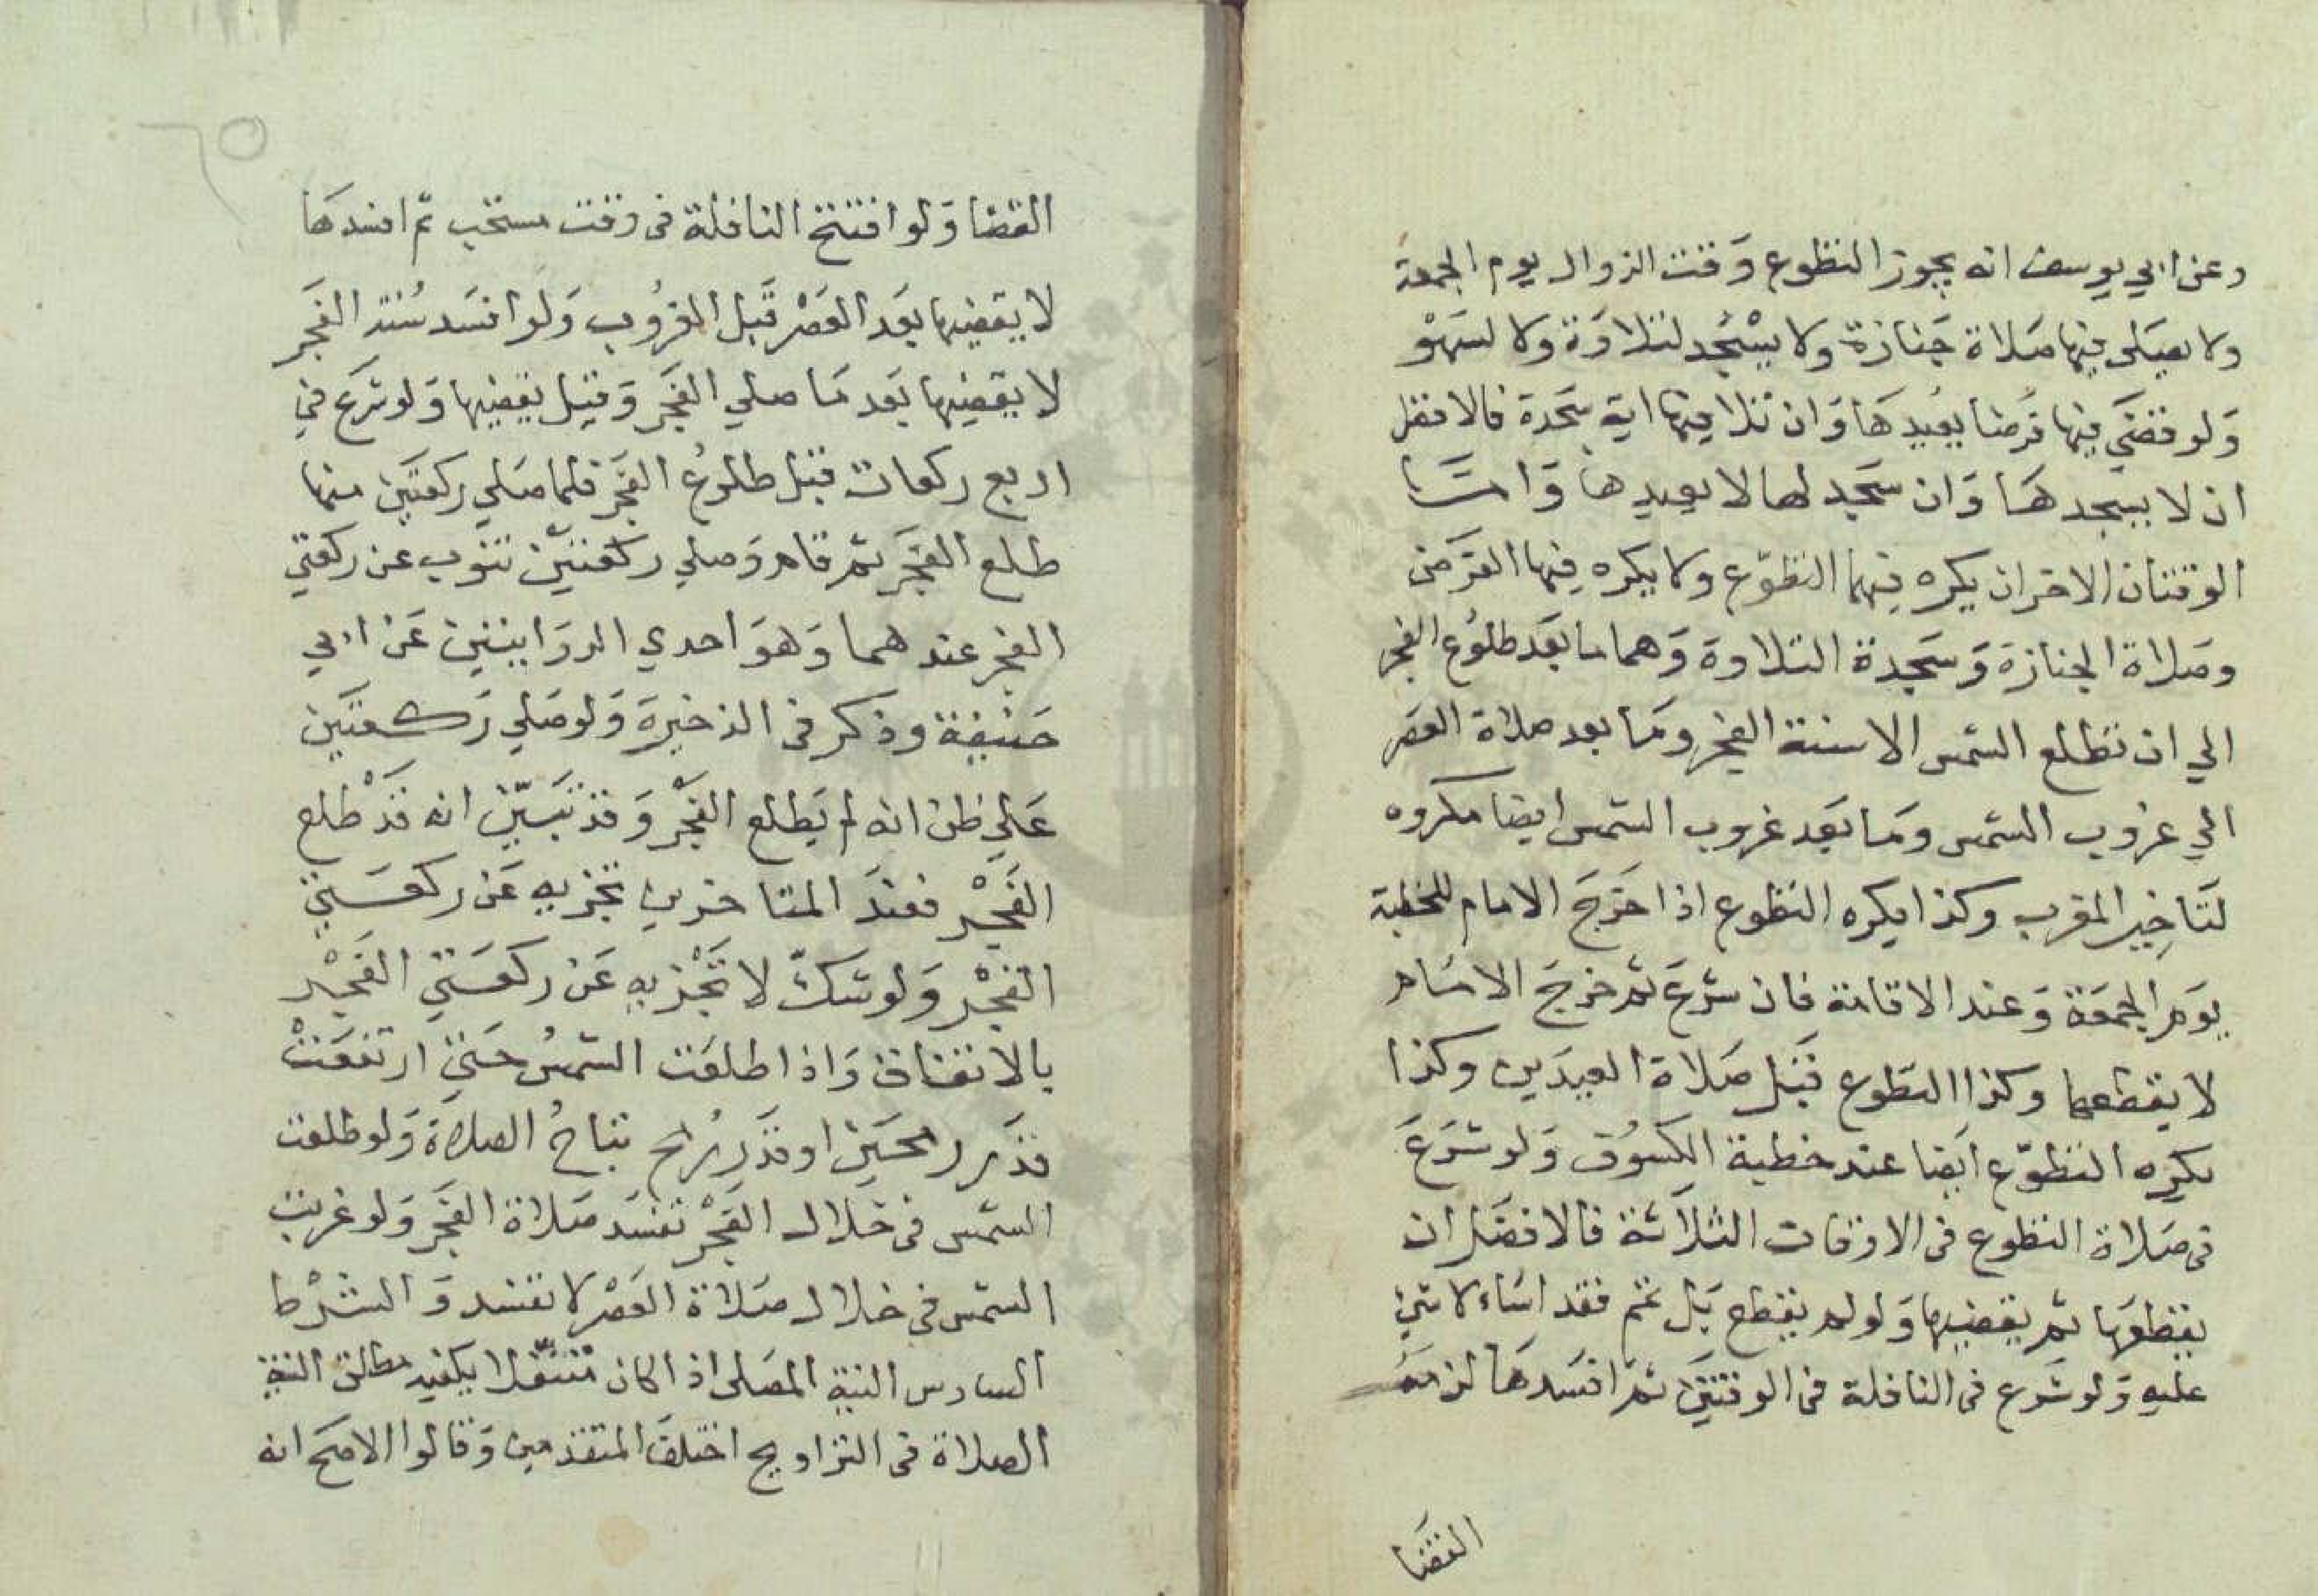 وعن ابي يوسف انه يجوز التطوع وَقت الزوال يوم الجمعة
ولا يصَلى فيها صَلاة جَنازة ولا يسْجُد لتلاوَة ولا لسَهْو
وَلو قضَي فيها فرضا يعُيدهَا وَان تلا فيها اية سَجدة فالافضل
ان لا يسجدهَا وَان سَجد لها لا يعيدها وَامَّا
الوقتان الاخران يكره فيهما التطوّع ولا يكره فيها الفَرض
وصَلاة الجنازة وَسَجدة التلاوة وَهما ما بعَد طلوُع الفجر
الي ان تطلع الشمس الا سنة الفجر ومَا بعد صلاة العصَر
الي غروب الشمس ومَا بعَد غروب الشمس ايضا مكروه
لتَاخِير المغرب وكذا يكره التطوع اذا خَرَجَ الامام للخطبة
يوَم الجمعَة وَعند الاقامة فان شَرعَ ثم خرجَ الامَام
لا يقطعها وكذا التطوع قبَل صَلاة العيدَين وكذا
يكره التطوّع ايَضا عند خطبة الكسُوف وَلو شَرَعَ
في صَلاة التطوع في الاوقات الثلاَثة فالافضَل ان
يقطعَها ثم يقضيها وَلو لم يقطع بَل تمم فقد اسَاء لا شي
عليه وَلو شرَع في النافلة في الوقتَين ثم افسَدهَا لزمَه
القضَا
٦٥
القضا وَلو افتتح النافلة في وقت مستحب ثم افسدهَا
لا يقضيها بعَد العَصْر قَبل الغرُوب وَلو افسَد سُنة الفَجَر
لا يقضيها بعَد مَا صلي الفَجَر وَقيل يقضيها وَلو شرَع في
اربع ركعات قبل طلوُع الفَجَر فلما صَلي ركعتَين منها
طلع الفجَر ثم قام وَصلي ركعتيَن تنوب عن ركعتي
الفجر عندهما وَهوَ احدي الروَايتين عَن ابي
حَنيفة وذكر في الذخيرة وَلو صَلي رَكعتَين
عَلي ظن انه لم يَطلع الفَجَر وَقد تبَيّن انه قدَ طلع
الفَجْر فعندَ المتاخرين تجزيه عَن ركعَتي
الفجْر وَلو شكّ لا تجَْزيه عَن ركعَتي الفَجْر
بالاتفاق وَاذا طلعَت الشمسُ حَتي ارتفعَتْ
قدَر رمحَين او قدَر رُمح تباحُ الصلاَة وَلو طلعت
الشمس في خلال الفَجْر تفسَد صَلاة الفجَر وَلو غربت
الشمس في خلال صَلاة العَصْر لا تفسد وَالشرْط
السادس النية المصَلى اذا كان مُتنفّلا يكفيه مطلق النية
الصلاة في التراويح اختلفَ المتقدمين وَقالوا الاصَح انه